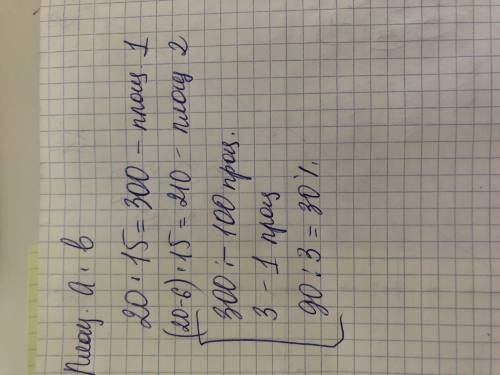 Площ. a · b
20 · 15 = 300 - площ. 1
(20-6) · 15 = 210 - площ 2
300 :- 100 проц.
3 - 1 проц
90 : 3 = 30%.